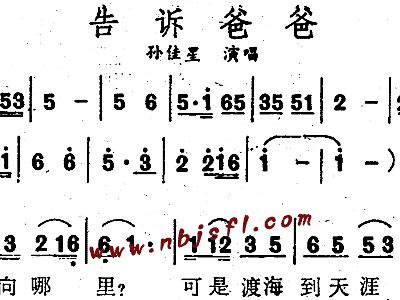 告诉爸爸
孙佳星 演唱
53 | 5 – | 5 6 | 5·1 65 | 35 51 | 2 – |
1 | 6 6 | 5·3 | 2 216 | 1 – | 1 – )
3 216 | 6 1 : | 1 12 3 5 | 6 5 53
www.nbjsfl.com
向哪 里? 可是渡海 到天涯